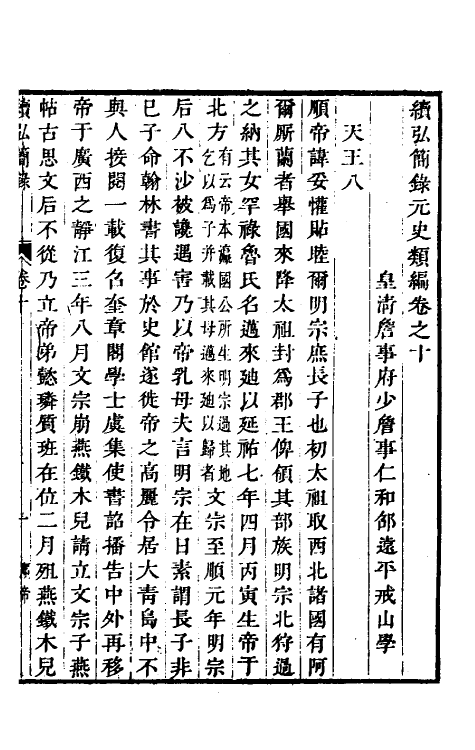 續弘簡錄元史類編卷之十
皇淸詹事府少詹事仁和邵遠平戒山學
天王八
順帝諱妥懽貼陸爾明宗庶長子也初太祖取西北諸國有阿
爾厮蘭者舉國來降太祖封爲郡王俾領其部族明宗北狩過
之納其女罕祿魯氏名邁來廸以延祐七年四月丙寅生帝于
北方有云帝本瀛國公所生明宗過其地乞以爲子并載其母邁來廸以歸者文宗至順元年明宗
后八不沙被讒遇害乃以帝乳母夫言明宗在日素謂長子非
已子命翰林書其事於史館遂徙帝之高麗令居大青島中不
與人接閱一載復名奎章閣學士虞集使書詔播告中外再移
帝于廣西之靜江三年八月文宗崩燕鐵木兒請立文宗子燕
帖古思文后不從乃立帝弟懿璘質班在位二月殂燕鐵木兒
續弘簡錄
卷十
一
順帝